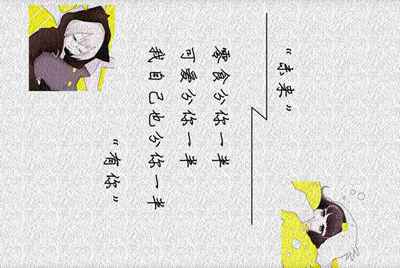 “未来”
零食分你一半
可爱分你一半
我自己也分你一半
“有你”